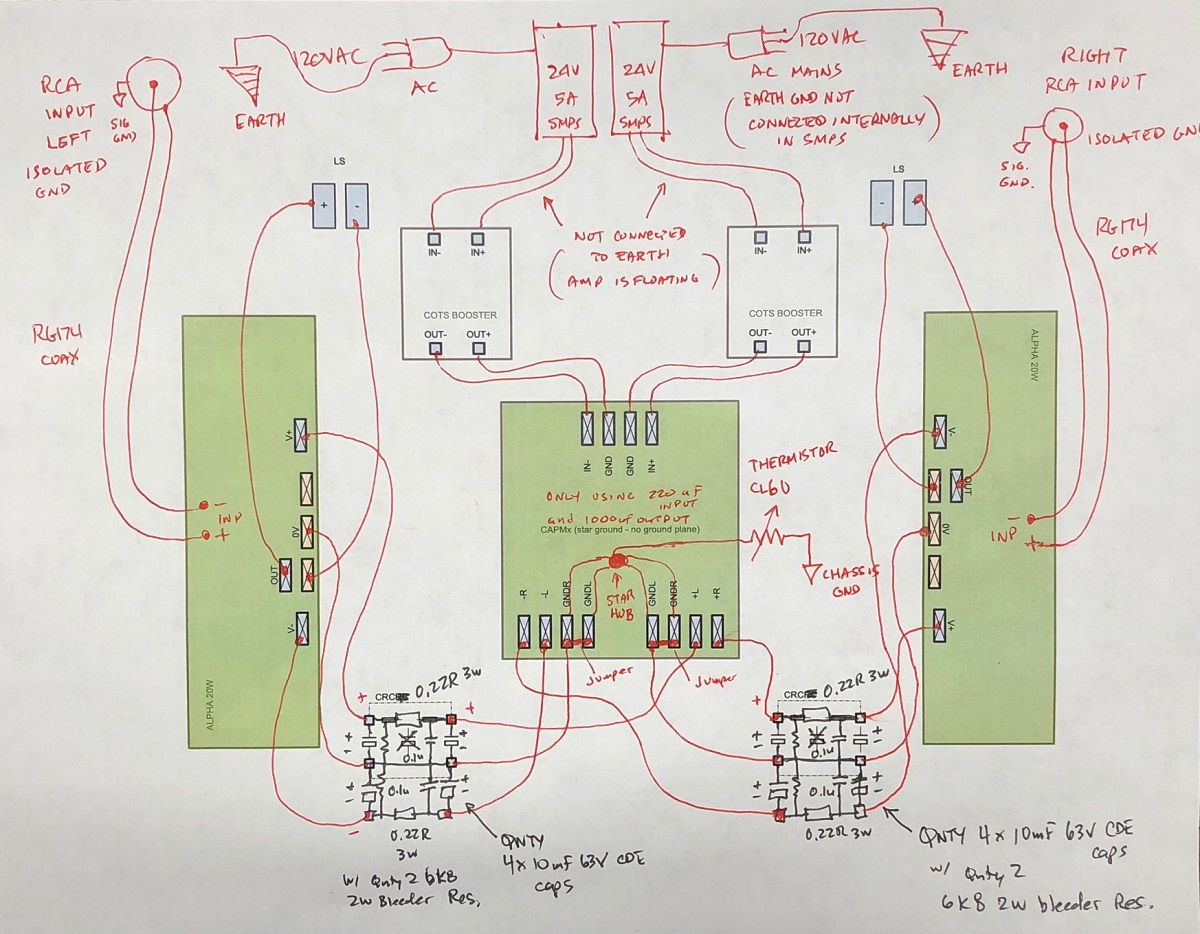 RCA
INPUT
LEFT
ISOLATED
GND
SIG
GND
EARTH
120VAC
AC
24V
5A
SMPS
24V
5A
SMPS
120VAC
AC MAINS
EARTH GND NOT
CONNECTED INTERNALLY
IN SMPS
EARTH
RIGHT
RCA INPUT
ISOLATED GN
SIG.
GND.
RG174
COAX
LS
+
-
LS
-
+
NOT CONNECTED
TO EARTH
AMP IS FLOATING
IN-
IN+
COTS BOOSTER
OUT-
OUT+
IN-
IN+
COTS BOOSTER
OUT-
OUT+
RG174
COAX
V+
- INP
+
0V
OUT
V-
ALPHA 20W
IN-
GND
GND
IN+
ONLY USING 220uF
INPUT
and 1000uF OUTPUT
CAPMx (star ground - no ground plane)
STAR
HUB
-R
-L
GNDR
GNDL
GNDL
GNDR
+L
+R
Jumper
Jumper
THERMISTOR
CL60
CHASSIS
GND
ALPHA 20W
V-
OUT
0V
-
INP
+
V+
CRC
0.22R 3W
+
+
0.1u
0.1u
-
0.22R
3W
W/ Qnty 2 6K8
2W Bleeder Res,
QNTY
4x10mF 63V CDE
caps
CRC
0.22R 3W
+
0.1u
0.1u
0.22R 3W
QNTY 4x10mF 63V CDE
caps
w/ Qnty 2
6K8 2W bleeder Res.